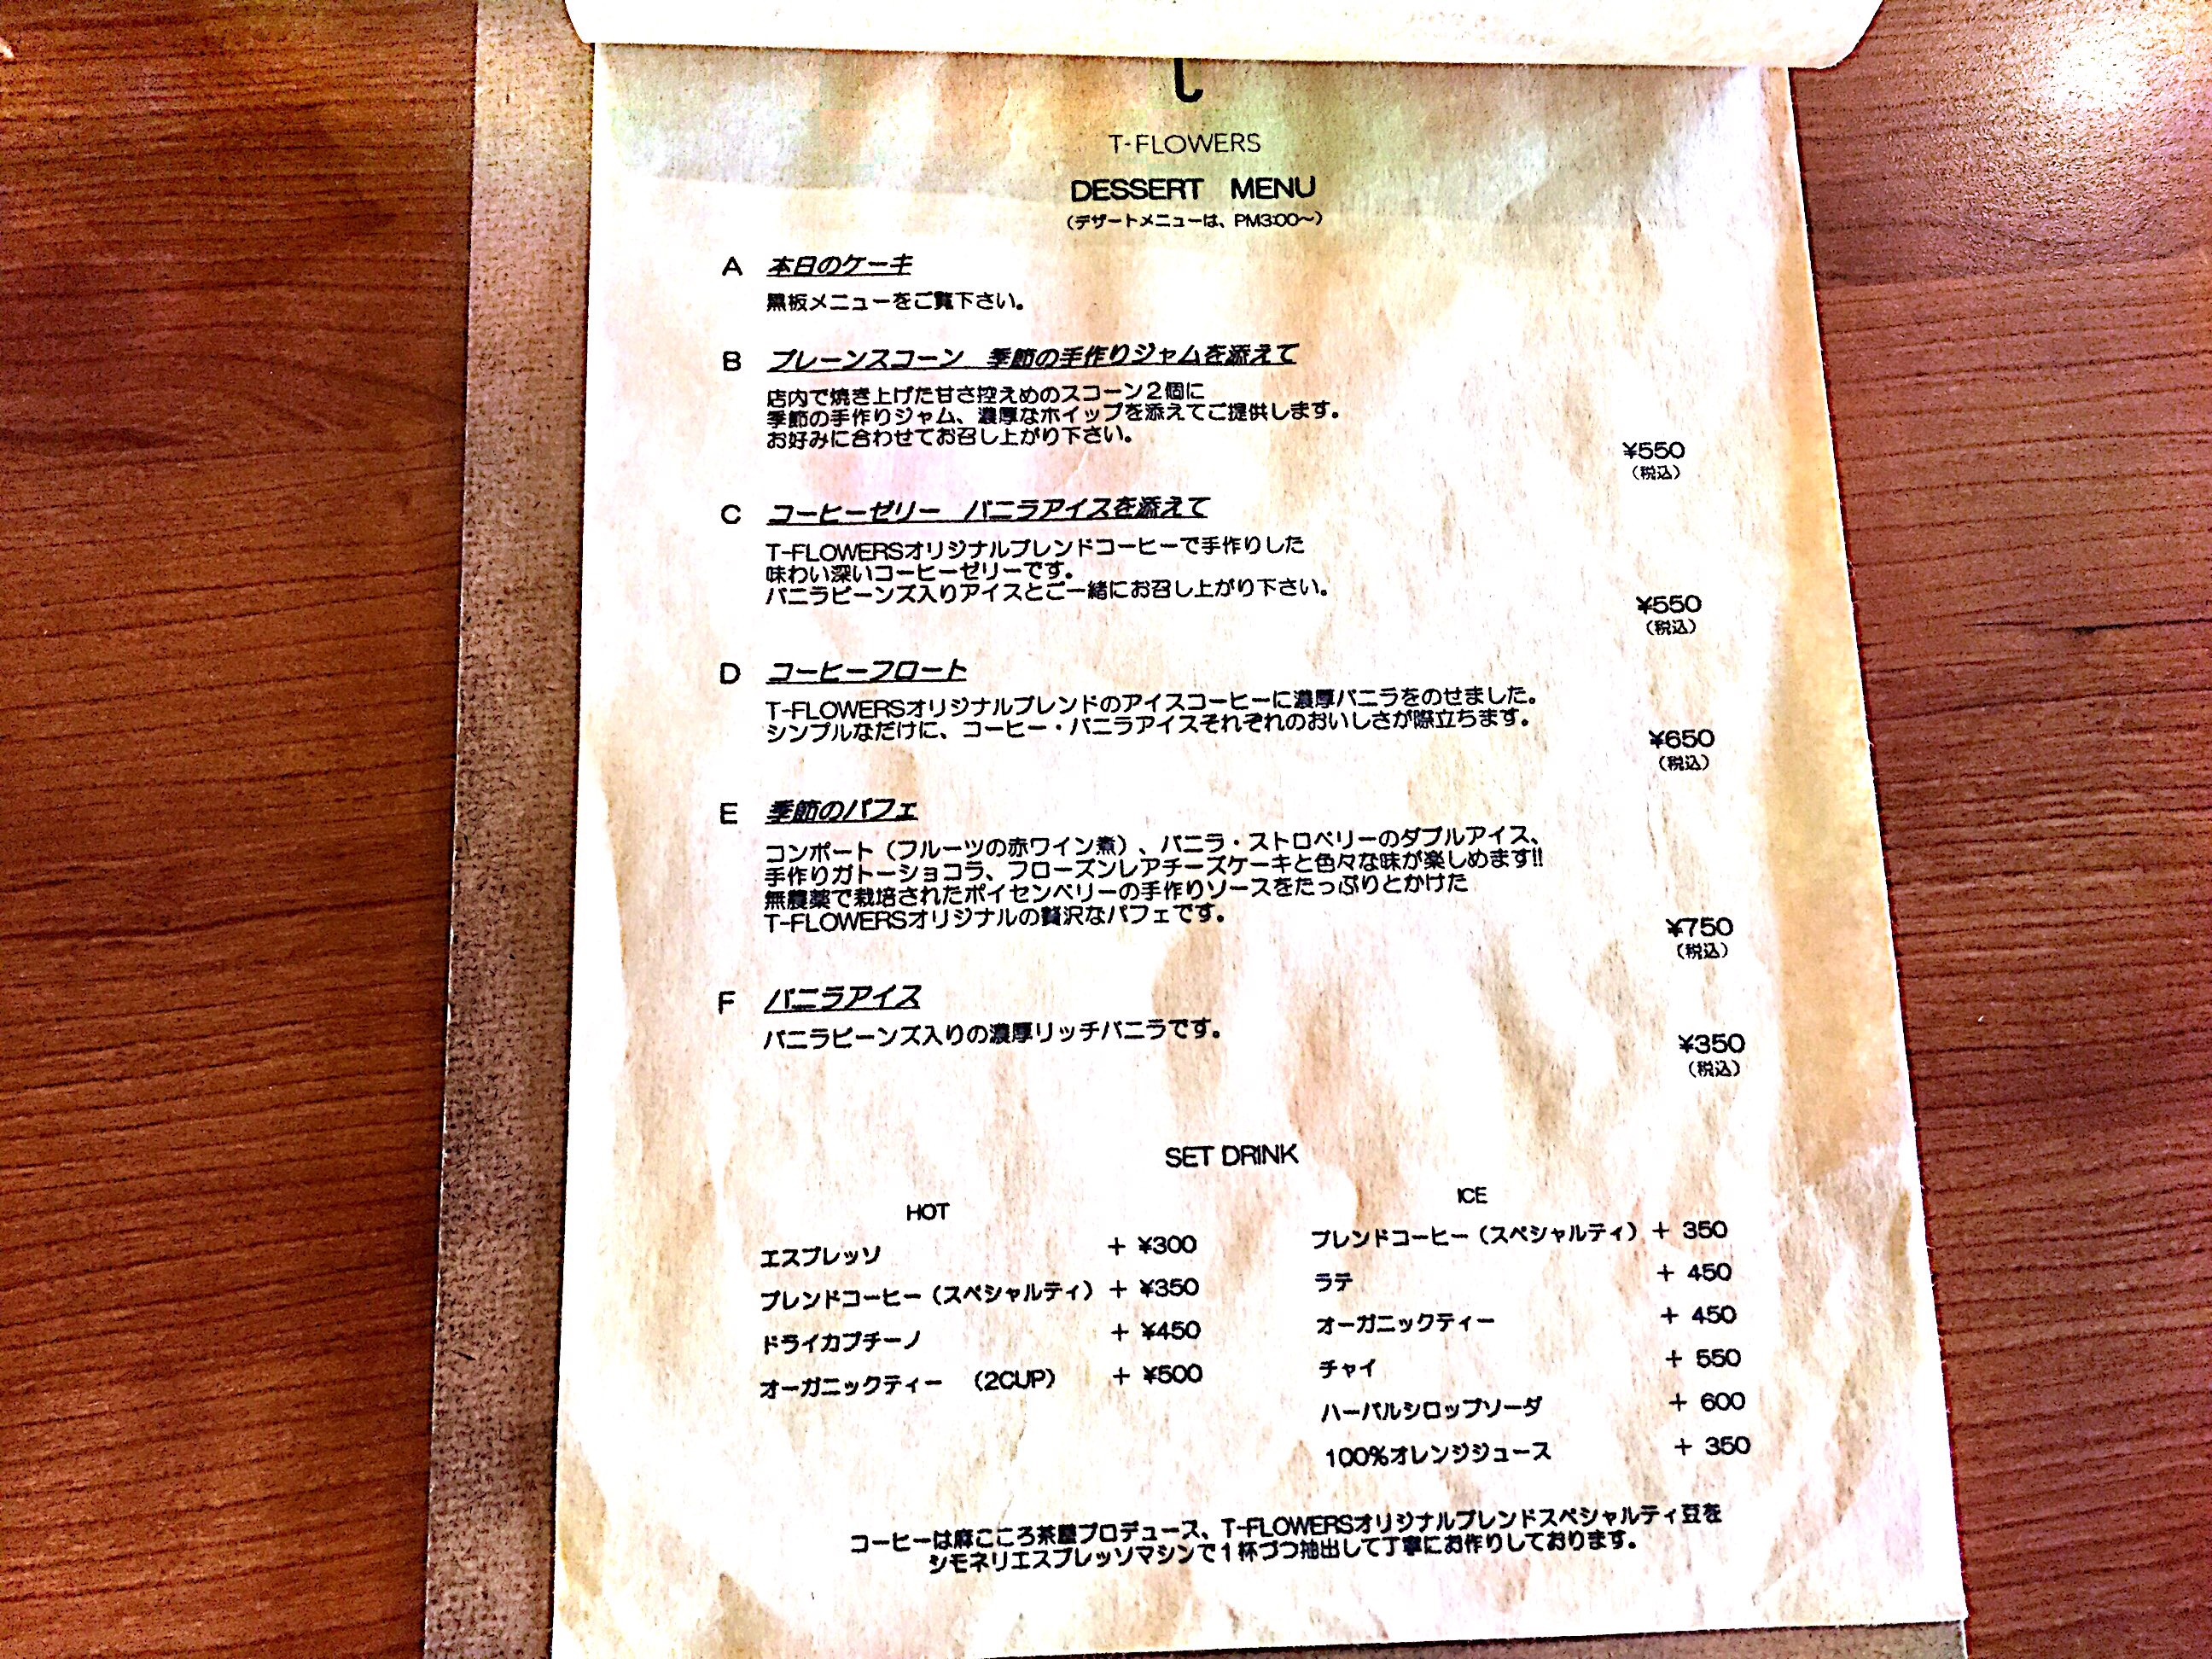 t
T-FLOWERS
DESSERT MENU
(デザートメニューは、PM3:00〜)
A 本日のケーキ
黒板メニューをご覧下さい。
B プレーンスコーン 季節の手作りジャムを添えて
店内で焼き上げた甘さ控えめのスコーン2個に
季節の手作りジャム、濃厚なホイップを添えてご提供します。
お好みに合わせてお召し上がり下さい。
¥550
(税込)
C コーヒーゼリー バニラアイスを添えて
T-FLOWERSオリジナルブレンドコーヒーで手作りした
味わい深いコーヒーゼリーです。
バニラビーンズ入りアイスとご一緒にお召し上がり下さい。
¥550
(税込)
D コーヒーフロート
T-FLOWERSオリジナルブレンドのアイスコーヒーに濃厚バニラをのせました。
シンプルなだけに、コーヒー・バニラアイスそれぞれのおいしさが際立ちます。
¥650
(税込)
E 季節のパフェ
コンポート(フルーツの赤ワイン煮)、バニラ・ストロベリーのダブルアイス、
手作りガトーショコラ、フローズンレアチーズケーキと色々な味が楽しめます!!
無農薬で栽培されたボイセンベリーの手作りソースをたっぷりとかけた
T-FLOWERSオリジナルの贅沢なパフェです。
¥750
(税込)
F バニラアイス
バニラビーンズ入りの濃厚リッチバニラです。
¥350
(税込)
SET DRINK
HOT
エスプレッソ + ¥300
ブレンドコーヒー(スペシャルティ) + ¥350
ドライカプチーノ + ¥450
オーガニックティー (2CUP) + ¥500
ICE
ブレンドコーヒー(スペシャルティ) + 350
ラテ + 450
オーガニックティー + 450
チャイ + 550
ハーバルシロップソーダ + 600
100%オレンジジュース + 350
コーヒーは麻こころ茶屋プロデュース、T-FLOWERSオリジナルブレンドスペシャルティ豆を
シモネリエスプレッソマシンで1杯づつ抽出して丁寧にお作りしております。